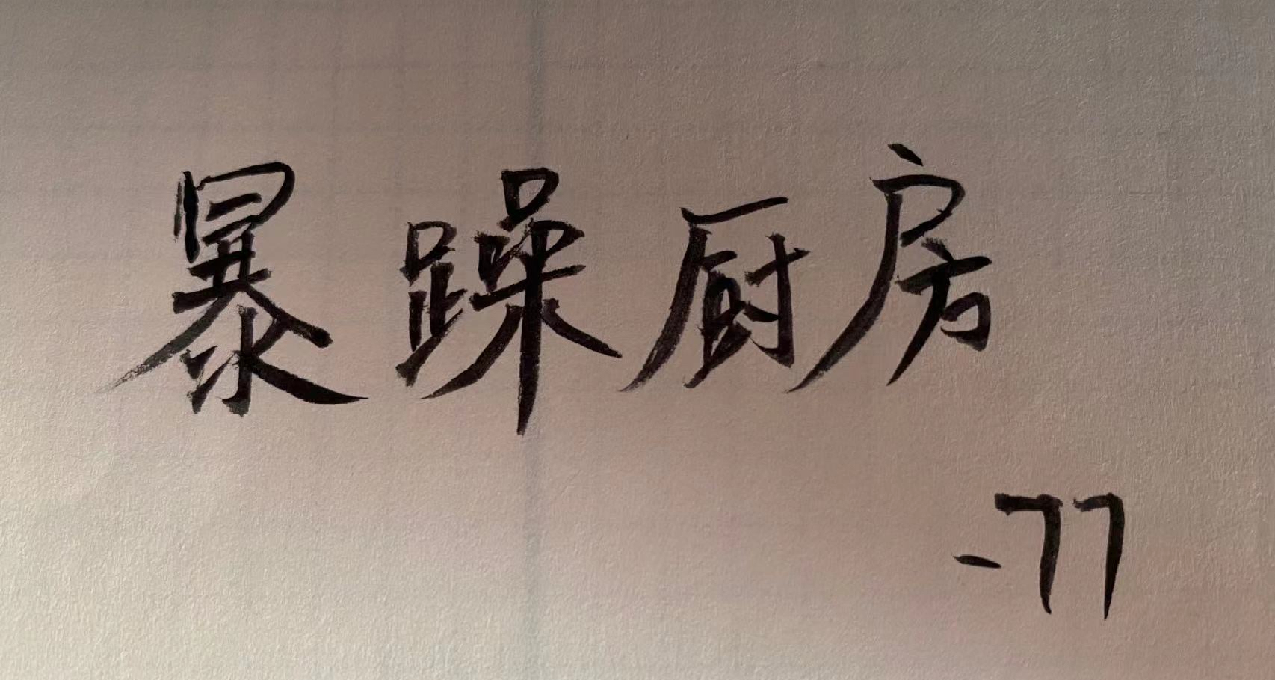 暴躁厨房
-77